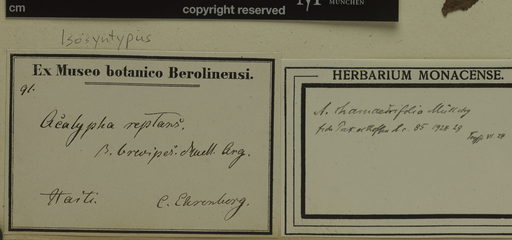 cm
copyright reserved
MÜNCHEN
Isosyntypus
Ex Museo botanico Berolinensi.
Acalypha reptans.
β. brevipes. Muell Arg.
Haiti.
C. Ehrenberg.
HERBARIUM MONACENSE.
A. chamaedrifolia Müll. Arg
fide Pax et Hoffm. l.c. 85 1924